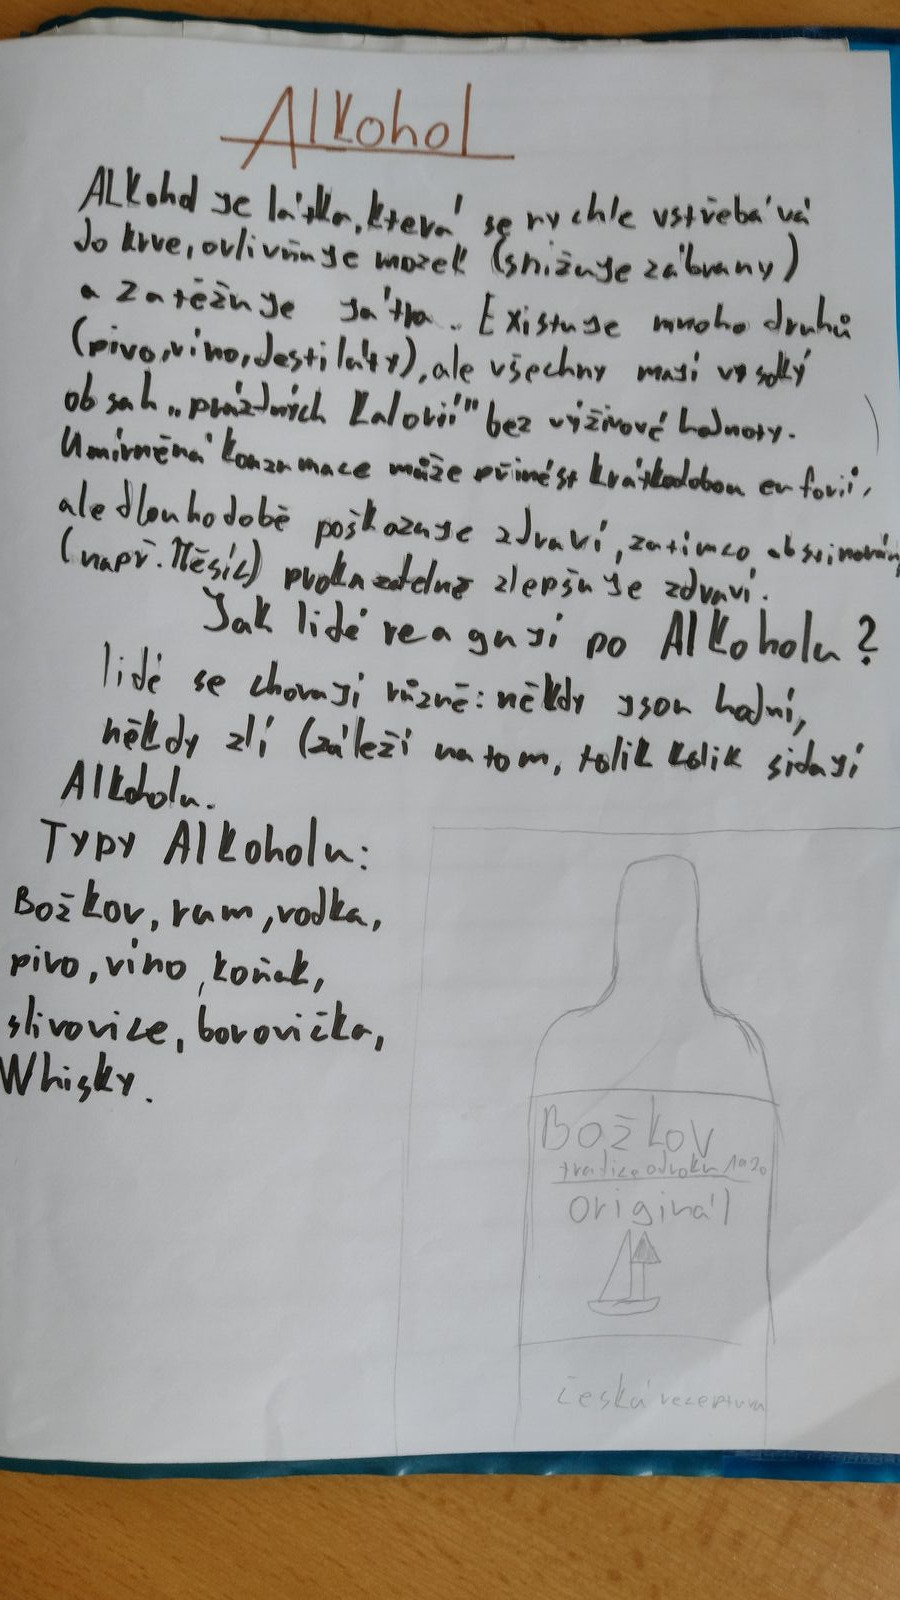 Alkohol
ALKohol je látka, která se rychle vstřebává
do krve, ovlivňuje mozek (snižuje zábrany)
a zatěžuje játra. Existuje mnoho druhů
(pivo, víno, destiláty), ale všechny mají vysoký
obsah „prázdných kalorií" bez výživové hodnoty.
Umírněná konzumace může přinést krátkodobou euforii,
ale dlouhodobě poškozuje zdraví, zatímco
(např. Měsíc) prokazatelně zlepšuje zdraví.
Jak lidé reagují po Alkoholu?
lidé se chovají různě: někdy jsou hodní,
někdy zlí (záleží na tom, tolik kolik si dají
Alkoholu.
Typy Alkoholu:
Božkov, rum, vodka,
pivo, víno, koňak,
slivovice, borovička,
Whisky.
Božkov
tradice od roku 1920
Originál
česká receptura